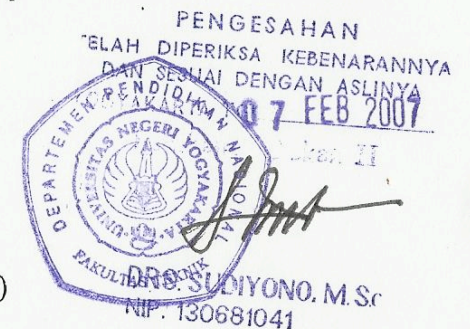 PENGESAHAN
TELAH DIPERIKSA KEBENARANNYA
DAN SESUAI DENGAN ASLINYA
YOGYAKARTA 07 FEB 2007
II
DEPARTEMEN PENDIDIKAN NASIONAL
UNIVERSITAS NEGERI YOGYAKARTA
FAKULTAS TEKNIK
DRS. SUDIYONO. M. Sc
NIP. 130681041
)